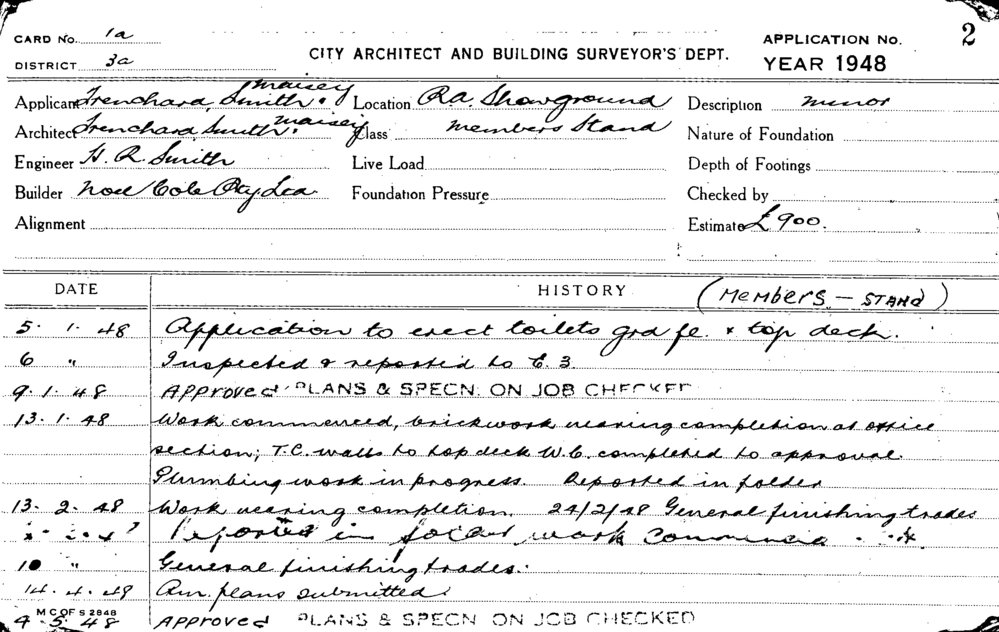 CARD No. 1a
DISTRICT 3a
CITY ARCHITECT AND BUILDING SURVEYOR'S DEPT.
APPLICATION No. 2
YEAR 1948
Applicant Trenchard, Smith & Maisey
Architect Trenchard, Smith & Maisey
Engineer H. R. Smith
Builder Noel Cole Pty Ltd
Alignment
Location R.A. Showground
Class members Stand
Live Load
Foundation Pressure
Description minor
Nature of Foundation
Depth of Footings
Checked by
Estimate £900.
DATE HISTORY (MEMBERS - STAND)
5. 1. 48 Application to erect toilets grd fl. & top deck.
6 " Inspected & reported to E. 3.
9. 1. 48 APPROVED PLANS & SPECN. ON JOB CHECKED
13. 1. 48 Work commenced, brickwork nearing completion at office
section; T.C. walls to top deck W.C. completed to approval.
Plumbing work in progress. Reported in folder
13. 2. 48 Work nearing completion. 24/2/48 General finishing trades
Reported in work
10 " General finishing trades.
14. 4. 48 Am. plans submitted.
M C OF S 2848
4. 5. 48 APPROVED PLANS & SPECN ON JOB CHECKED